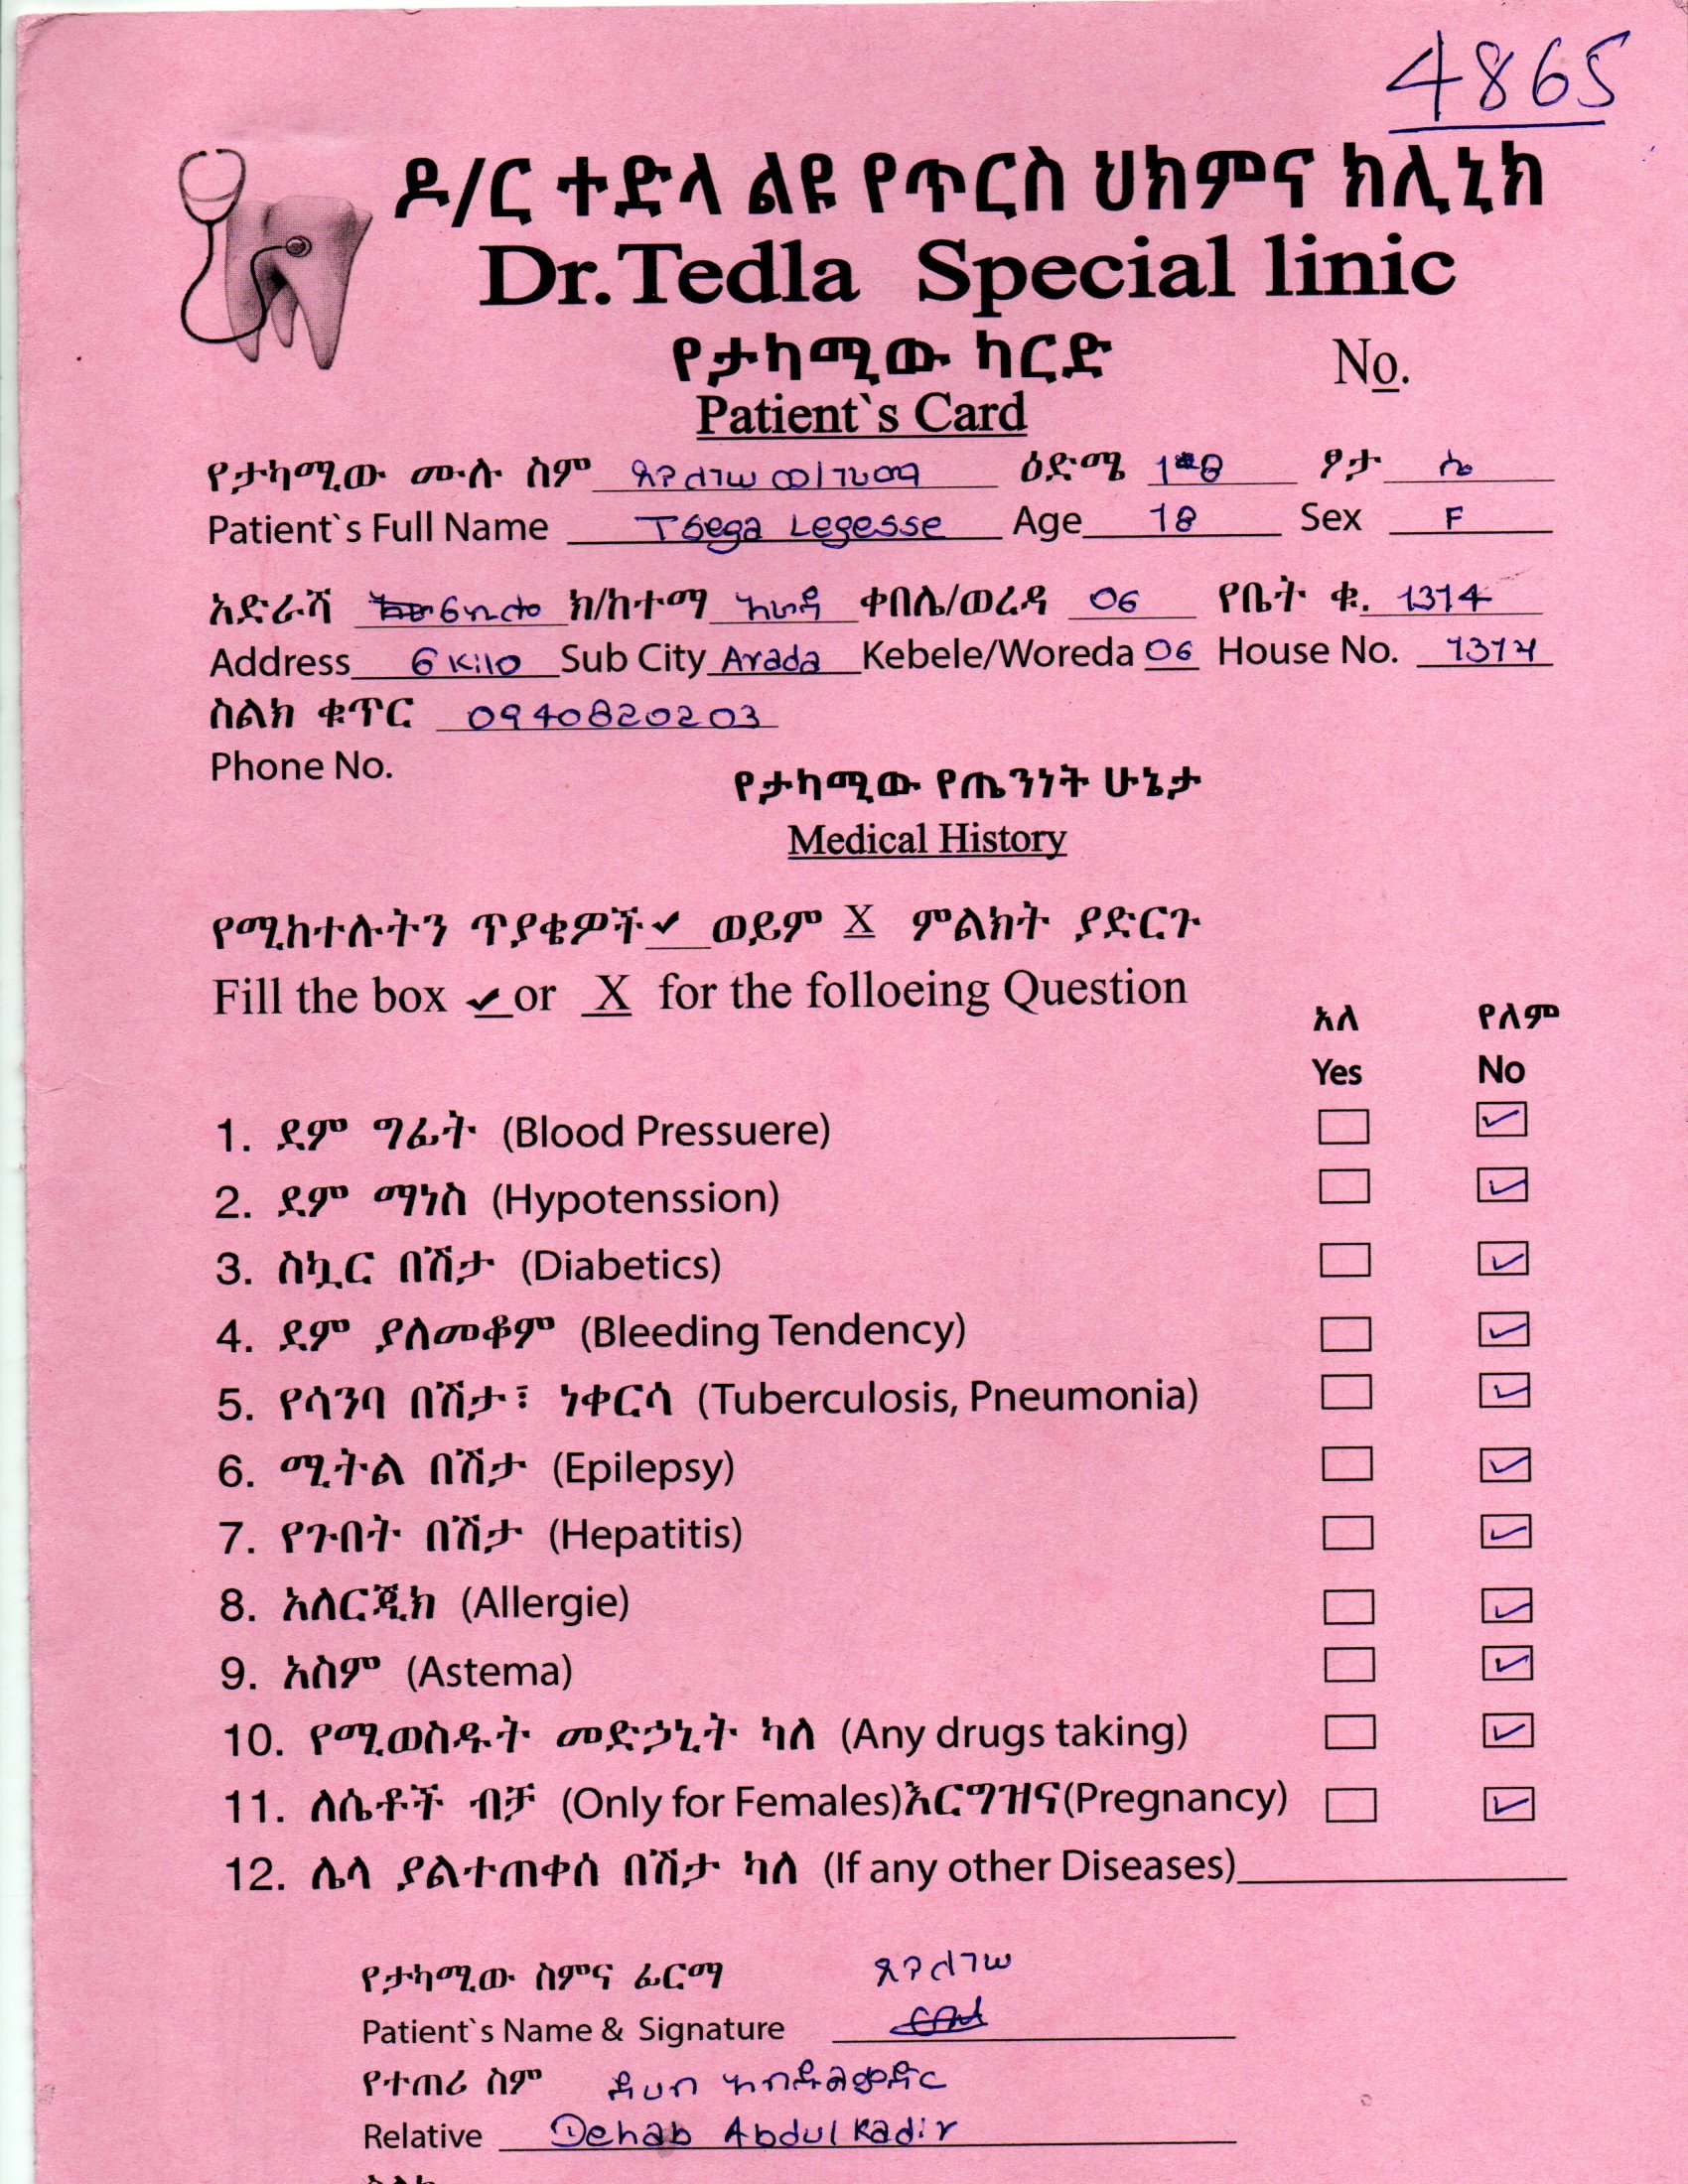 4865
ዶ/ር ተድላ ልዩ የጥርስ ህክምና ክሊኒክ
Dr.Tedla Special linic
የታካሚው ካርድ No.
Patient`s Card
የታካሚው ሙሉ ስም ጸጋ ለገሠ ዕድሜ 18 ፆታ ሴ
Patient`s Full Name Tsega Legesse Age 18 Sex F
አድራሻ 6 ኪሎ ክ/ከተማ አራዳ ቀበሌ/ወረዳ 06 የቤት ቁ. 1314
Address 6 Kilo Sub City Arada Kebele/Woreda 06 House No. 1314
ስልክ ቁጥር 0940820203
Phone No.
የታካሚው የጤንነት ሁኔታ
Medical History
የሚከተሉትን ጥያቄዎች ✔ ወይም X ምልክት ያድርጉ
Fill the box ✔ or X for the folloeing Question
አለ የለም
Yes No
1. ደም ግፊት (Blood Pressuere) ✓
2. ደም ማነስ (Hypotenssion) ✓
3. ስኳር በሽታ (Diabetics) ✓
4. ደም ያለመቆም (Bleeding Tendency) ✓
5. የሳንባ በሽታ፣ ነቀርሳ (Tuberculosis, Pneumonia) ✓
6. ሚትል በሽታ (Epilepsy) ✓
7. የጉበት በሽታ (Hepatitis) ✓
8. አለርጂክ (Allergie) ✓
9. አስም (Astema) ✓
10. የሚወስዱት መድኃኒት ካለ (Any drugs taking) ✓
11. ለሴቶች ብቻ (Only for Females)እርግዝና(Pregnancy) ✓
12. ሌላ ያልተጠቀሰ በሽታ ካለ (If any other Diseases)
የታካሚው ስምና ፊርማ ጸጋ ለገሠ
Patient`s Name & Signature
የተጠሪ ስም ዴሀብ አብዱልቃዲር
Relative Dehab Abdulkadir